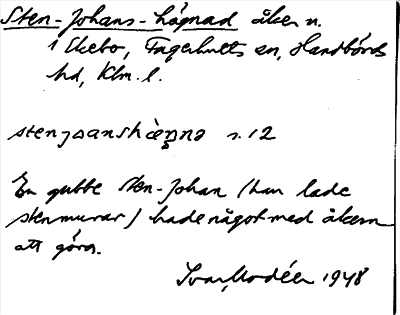 Sten-Johans-hägnad åker n.
i Ekebo, Fagerhults sn, Handbörds
hd, Klm. l.
stenjoanshæŋnə s. 12
En gubbe Sten-Johan (han lade
stenmurar) hade något med åkern
att göra.
Ivar Modéer 1948